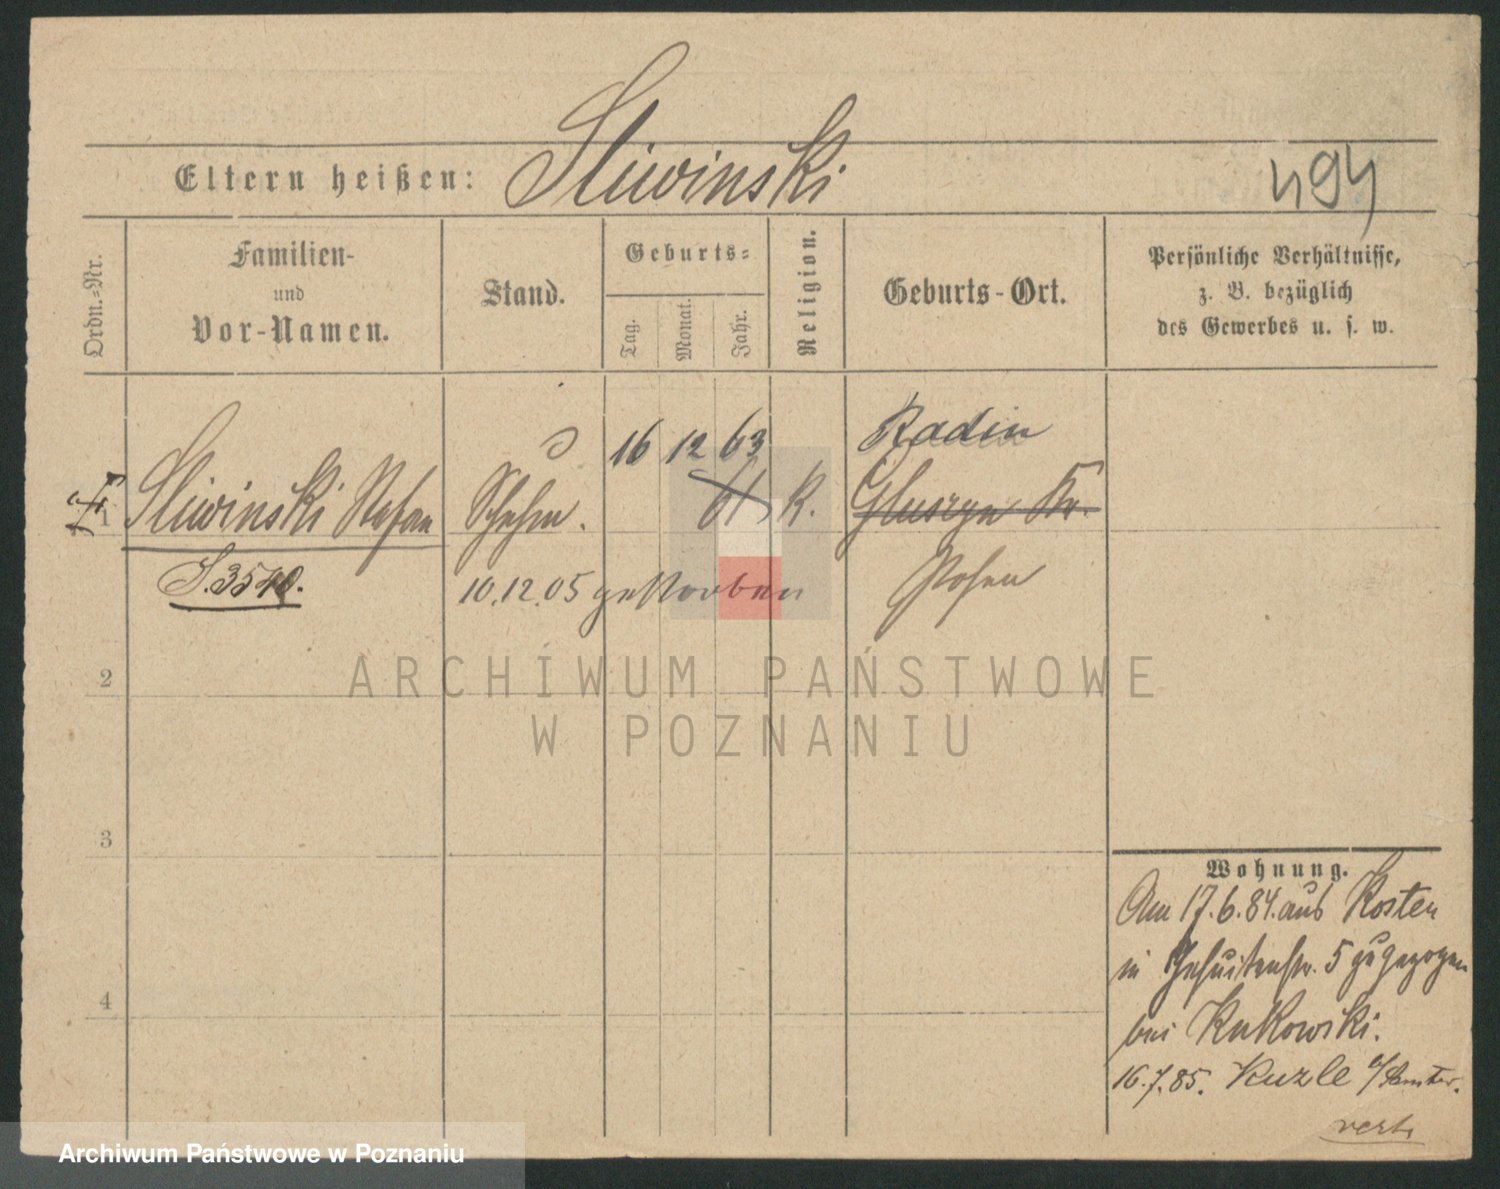 Sliwinski
Eltern heißen:
494
Ordn.-Nr.
Familien-
und
Vor-Namen.
Stand.
Geburts-
Tag.
Monat.
Jahr.
Religion.
Geburts-Ort.
Persönliche Verhältnisse,
z. B. bezüglich
des Gewerbes u. s. w.
16 12 63
Radin
1
Sliwinski Stefan
61
K.
Gluszyn Kr.
Posen
S. 3540.
10.12.05 gestorben
2
3
4
Wohnung.
Am 17.6.84. aus Kosten
in Jesuitenstr. 5 zugezogen
bei Kukowski.
16.7.85. Kuzle
vert.
ARCHIWUM PAŃSTWOWE
W POZNANIU
Archiwum Państwowe w Poznaniu